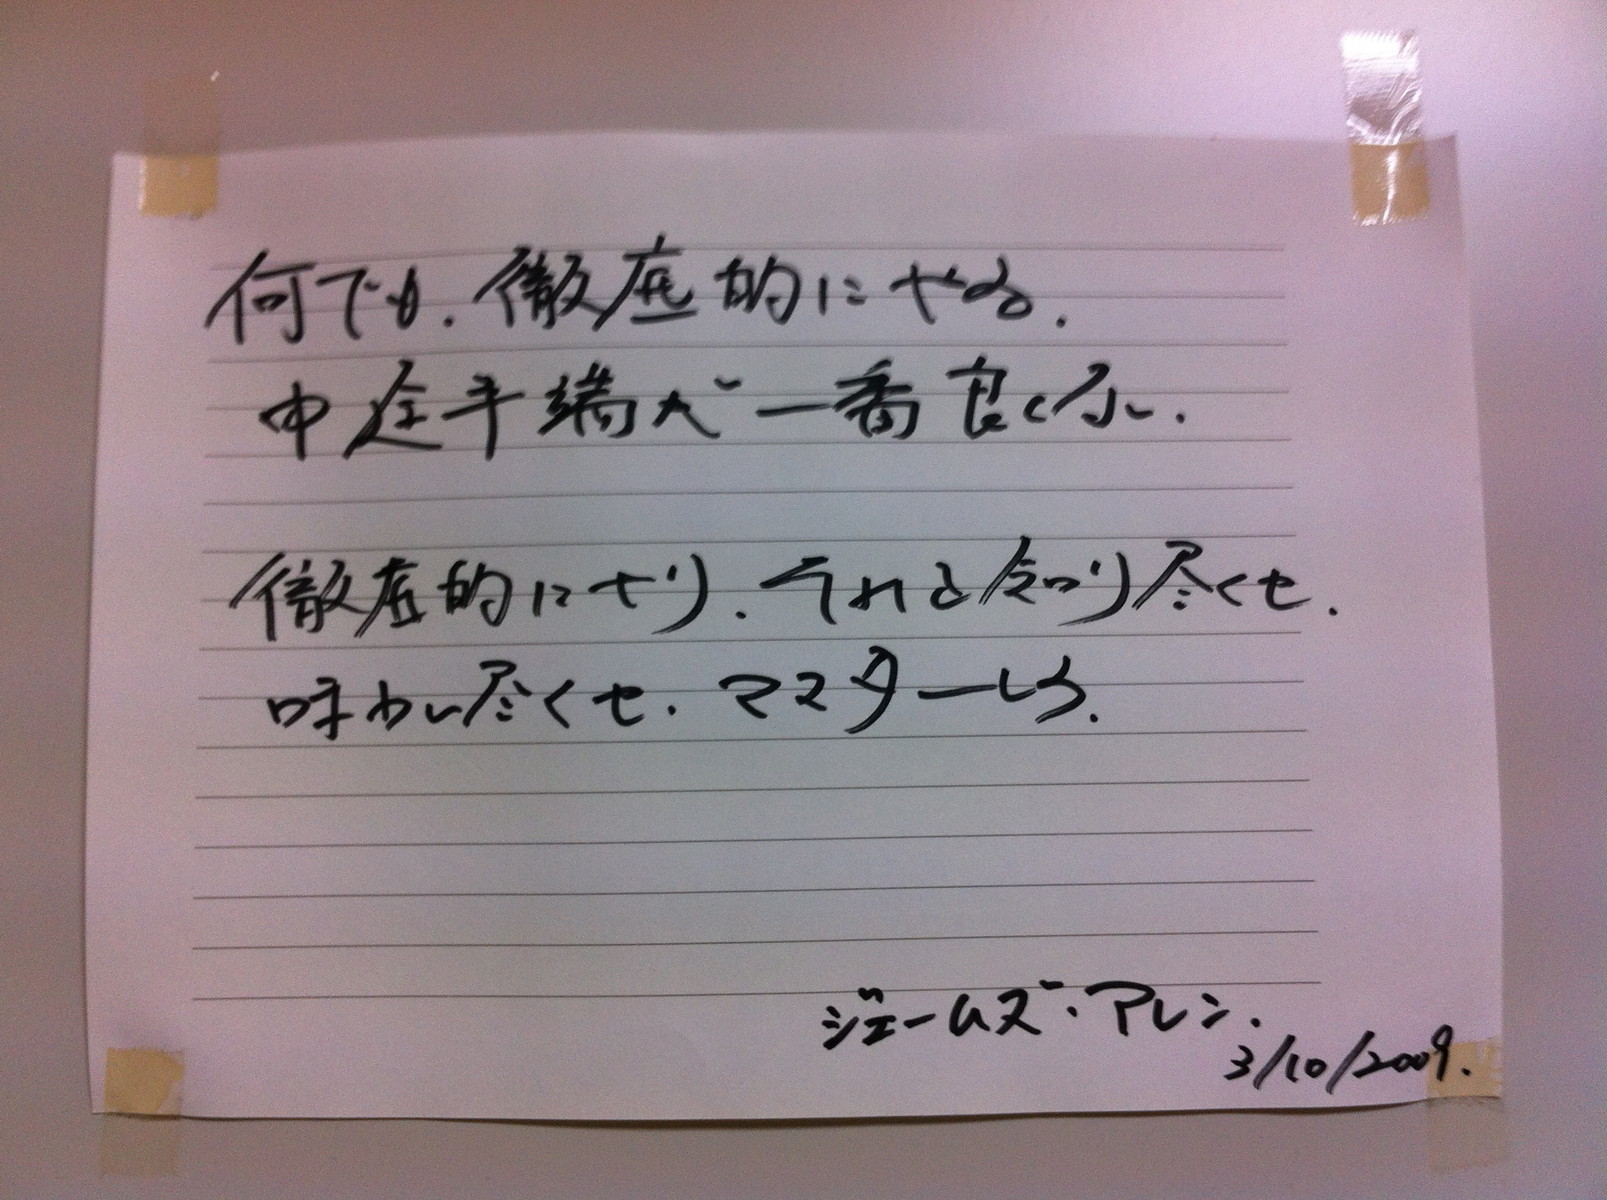 何でも.徹底的にやる.
中途半端が一番良くない.
徹底的にやり.それを知り尽くせ.
味わい尽くせ.マスターしろ.
ジェームズ・アレン.
3/10/2009.